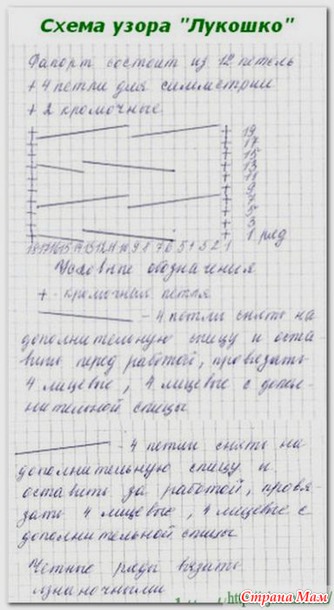 Схема узора "Лукошко"
Рапорт состоит из 12 петель
+ 4 петли для симметрии
+ 2 кромочные
19
17
15
13
11
9
7
5
3
1 ряд
18 17 16 15 14 13 12 11 10 9 8 7 6 5 4 3 2 1
Условные обозначения
+ - кромочная петля
- 4 петли снять на
дополнительную спицу и оста
вить перед работой, провязать
4 лицевые, 4 лицевые с допол-
нительной спицы
- 4 петли снять на
дополнительную спицу и
оставить за работой, провя-
зать 4 лицевые, 4 лицевые с
дополнительной спицы
Четные ряды вязать
изнаночными
Страна Мам